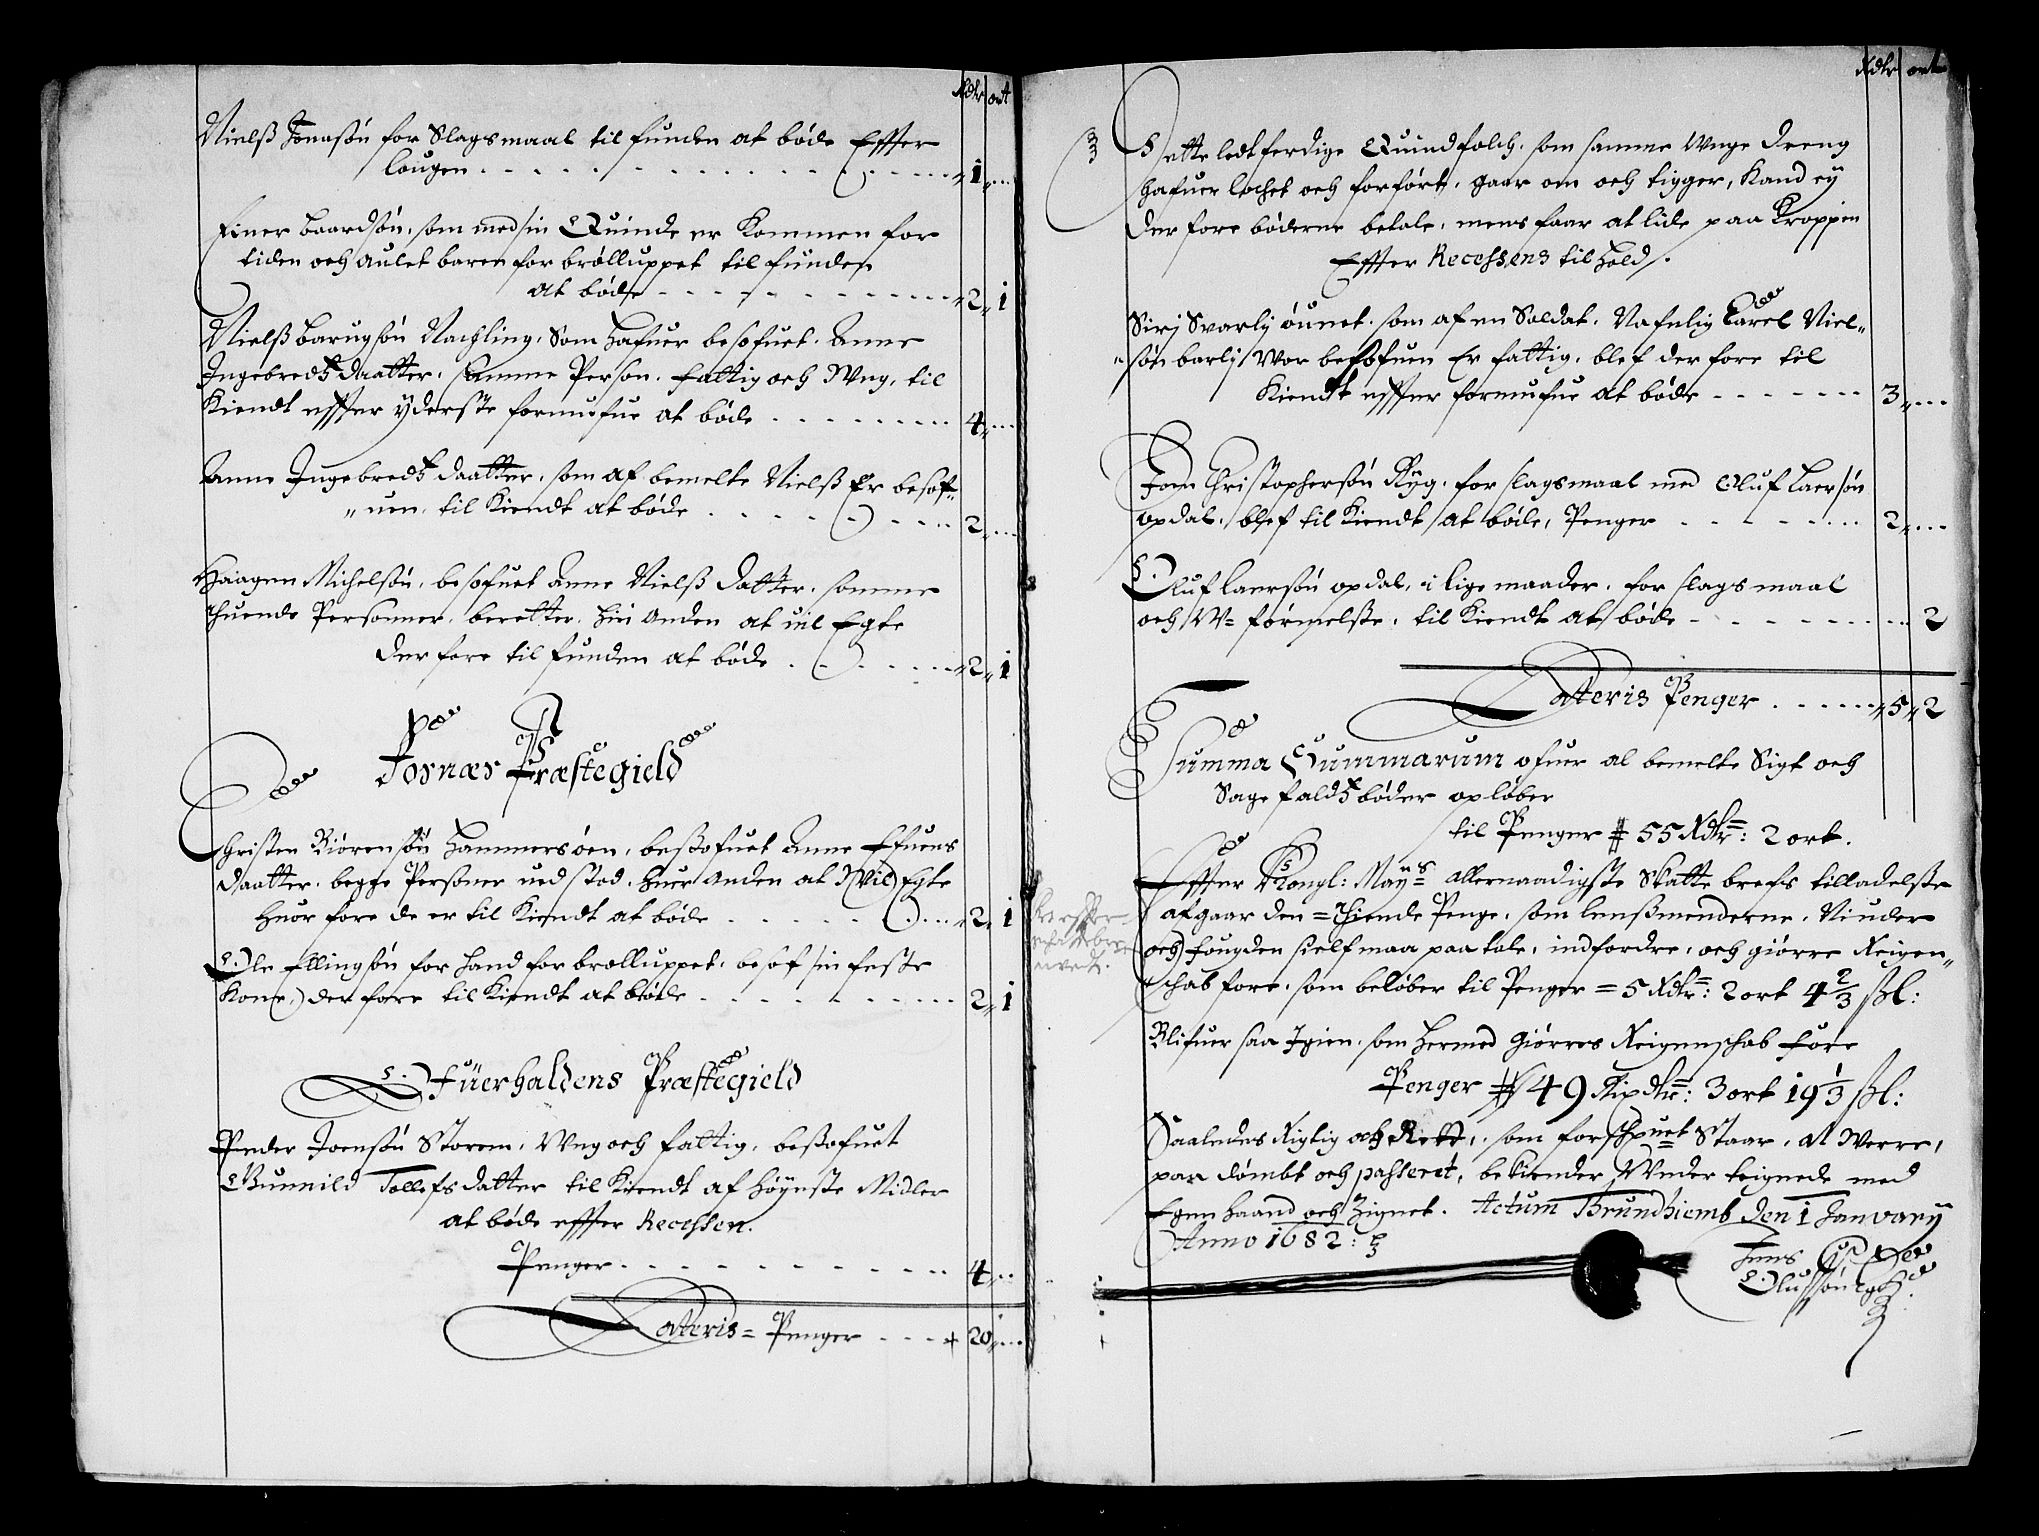 Rdlr ort
Nielß Jonasøn for Slagsmaal til funden at bøde Effter
Lougen - - - 1 ...
Einer Baardsøn, som med sin Quinde er Kommen for
tiden och aulet baren for brølluppet til funden
at bøde - - - 2 1
Nielß Barugsøn Nachling, Som hafuer besofuet Anne
Ingebredtz daatter, Samme Person fattig och Ung, til
Kiendt effter yderste formufue at bøde - - - 4 ...
Anne Ingebredtz daatter, som af bemelte Nielß Er besof„
„uen, til Kiendt at bøde - - - 2 ...
Haagen Michelsøn, besofuet Anne Nielß datter, samme
thuende Personner, beretter hin anden at uil Egte
der fore til funden at bøde - - - 2 1
Fosnæs Præstegield
Christen Biørensøn Hammersøen, beßofuet Anne Efuens
daatter, begge Personer ued stod, huer anden at Wil Egte
huor fore de er til Kiendt at bøde - - - 2 1
Ole Ellingsøn for hand for brølluppet, besof sin feste
Kone, der fore til Kiendt at bøde - - - 2 1
Ofüerhaldens Præstegield
Peder Joensøn Storem, Ung och fattig, beßofuet
Gunnild Tollefsdatter til Kiendt af høyeste Midler
at bøde effter Recessen.
Penger - - - 4 ...
Lateris = Penger - - - 20 ...
Rdlr ort
Dette ledtferdige Quindfolch, som samme Unge dreng
hafuer lochet och forført, gaar om och tigger, Kand ey
der fore bøderne betale, mens faar at lide paa Kroppen
Effter Recessens tilhold.
Sirj Svarlj ounet, som af en Soldat, Nafnlig Carel Niel„
„søn barlj Wor besofuen Er fattig, blef der fore til
Kiendt effter formufue at bøde - - - 3 ...
Joen Christophersøn Ryg, for slagsmaal med Oluf Laersøn
opdal, blef til Kiendt at bøde, Penger - - - 2 ...
Oluf Laersøn opdal, i lige maader, for slagsmaal
och U= førmelße, til Kiendt at bøde - - - 2
Lateris Penger - - - 5 2
Summa Summarum ofuer al bemelte Sigt och
Sage faldtz bøder opløber
til Penger # 55 Rdlr: 2 ort.
Effter Kongl: Mayts allernaadigste Skatte brefs tilladelße
afgaar den = Thiende Penge, som Lenßmenderne, Niuder
och fougden sielf maa paa tale, indfordre, och giørre Reigen„
„schab fore, som beløber til Penger = 5 Rdlr: 2 ort 4 2/3 ßl:
Blifuer saa Igien, som hermed Giørres Reigenschab fore
Penger # 49 Rixdlr: 3 ort 19 1/3 ßl:
Saaledes Rigtig och Rett, som forschreuet Staar, at Werre,
paa dømbt och passeret, bekiender Under teignede med
Egen haand och Zignet. Actum Trundhiemb den 1 January
Anno 1682:
Jens
Olufsøn